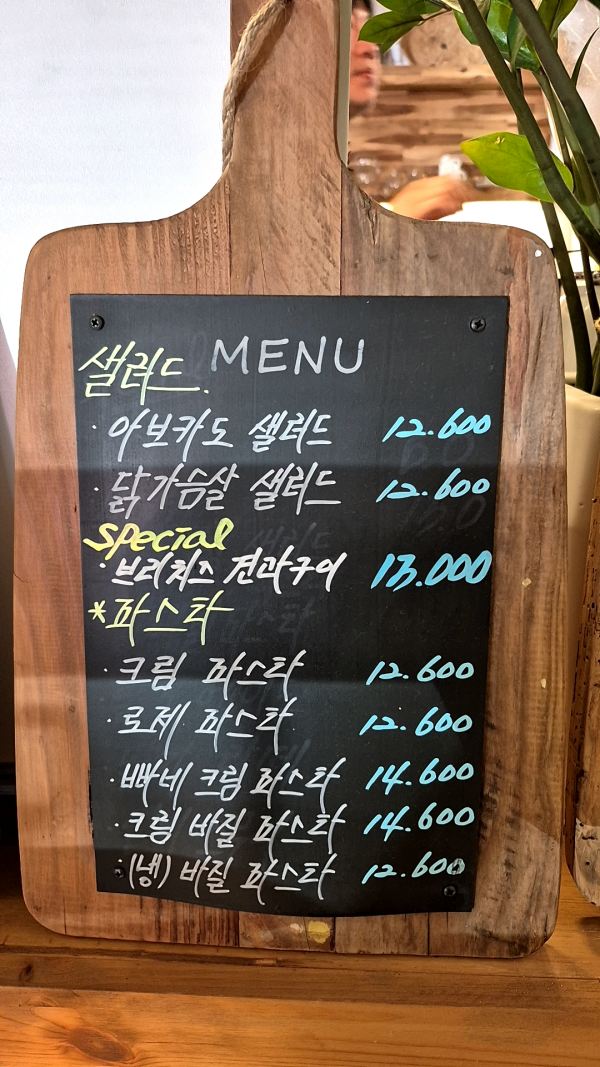 MENU
샐러드.
· 아보카도 샐러드 12.600
· 닭가슴살 샐러드 12.600
special
· 브리치즈 견과구이 13.000
*파스타
· 크림 파스타 12.600
· 로제 파스타 12.600
· 빠네 크림 파스타 14.600
· 크림 바질 파스타 14.600
· (냉) 바질 파스타 12.600